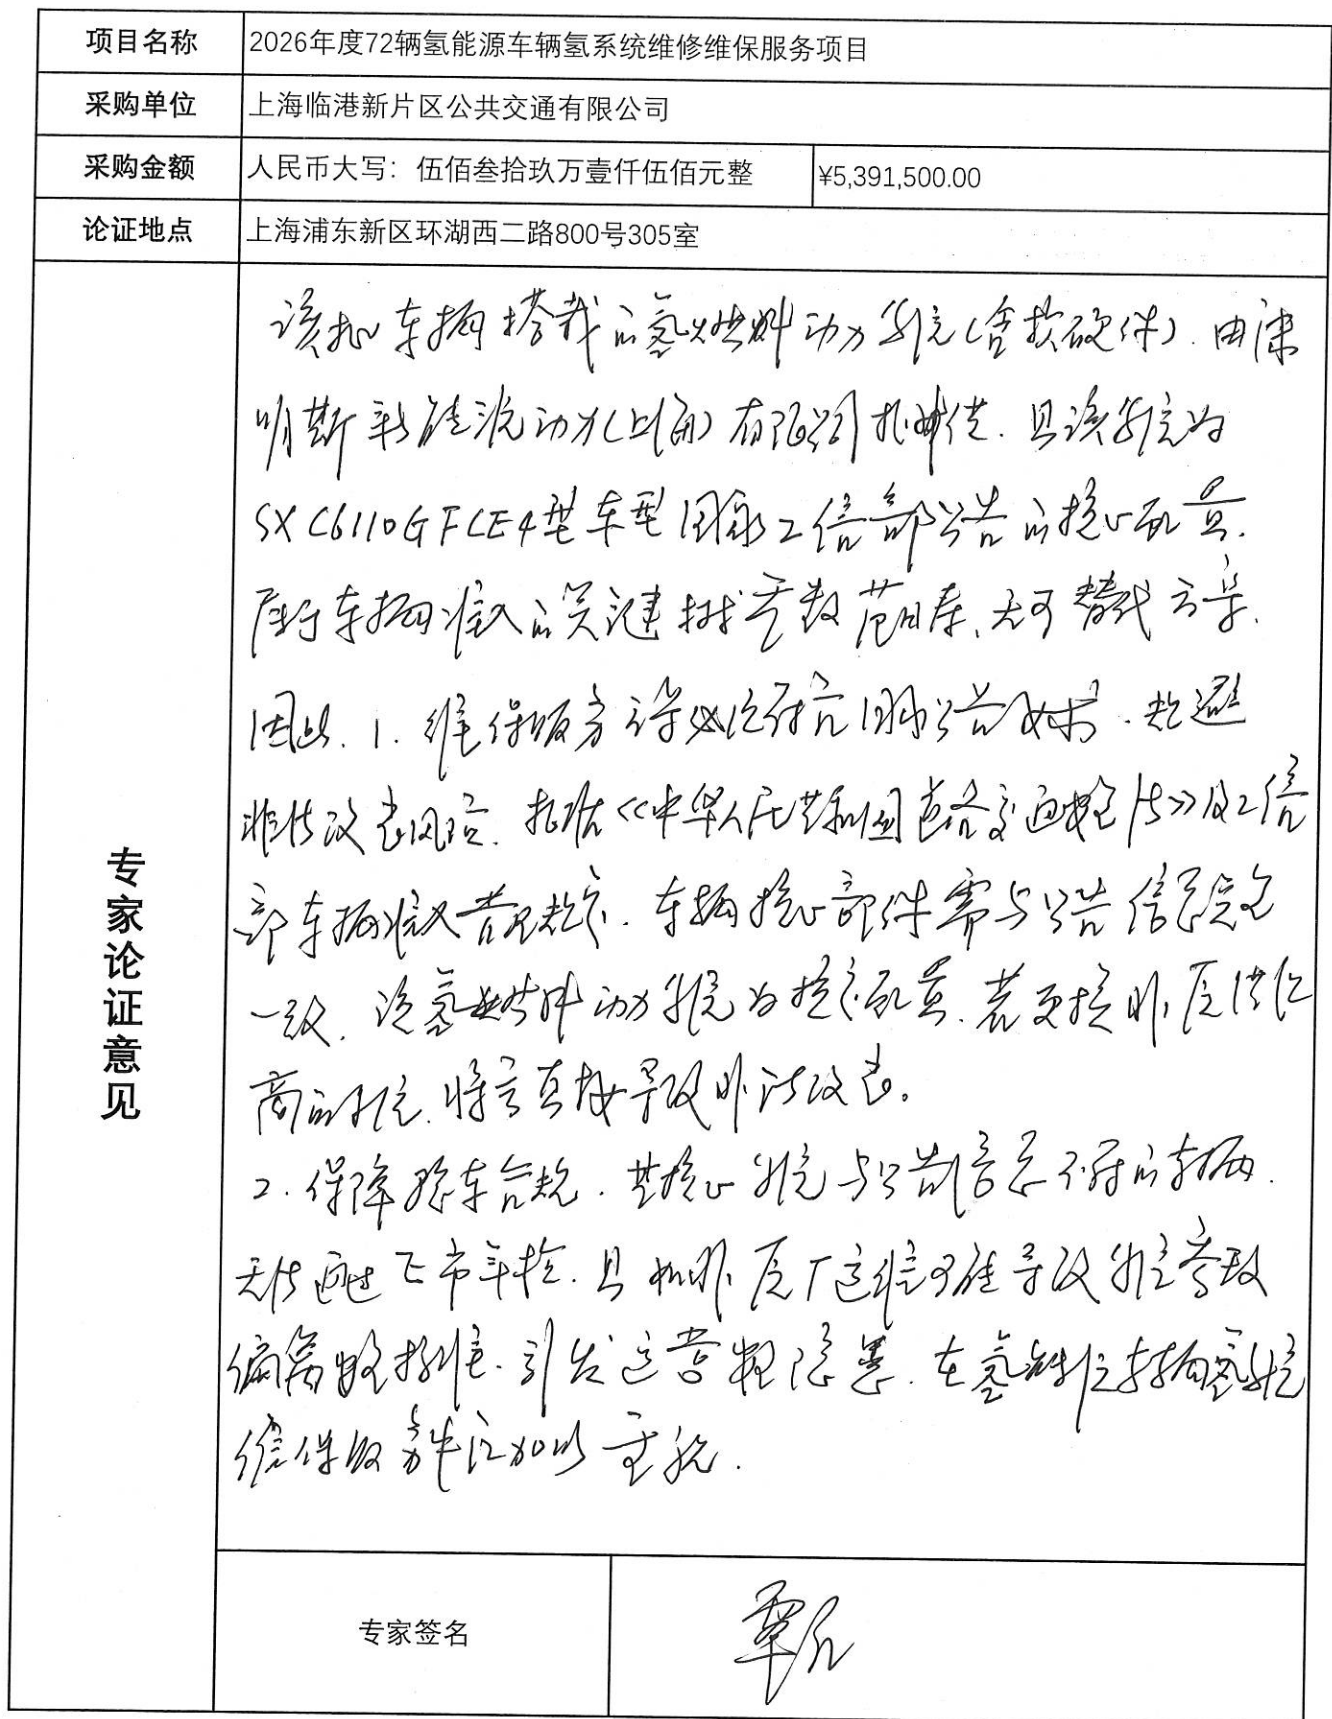 项目名称 2026年度72辆氢能源车辆氢系统维修维保服务项目
采购单位 上海临港新片区公共交通有限公司
采购金额 人民币大写：伍佰叁拾玖万壹仟伍佰元整 ¥5,391,500.00
论证地点 上海浦东新区环湖西二路800号305室
专家论证意见
该批车辆搭载的氢燃料动力系统(含软硬件).由康
明斯新能源动力(上海)有限公司提供.且该系统为
SXC6110GFCE4型车型国家工信部公告的核心配置.
属于车辆准入的关键技术参数范畴,无可替代方案.
因此.1.维保服务必须符合国家公告要求.规避
非法改装风险.根据《中华人民共和国道路交通安全法》及工信
部车辆准入管理规定.车辆核心部件需与公告信息完全
一致.该氢燃料动力系统为核心配置.若更换非原供应
商的系统.将会直接导致非法改装。
2.保障验车合规.其核心系统与公告信息不符的车辆.
无法通过上市年检.且如非原厂运维可能导致系统参数
偏离安全标准.引发运营安全隐患.在氢能源车辆氢系统
维保服务中应加以重视.
专家签名